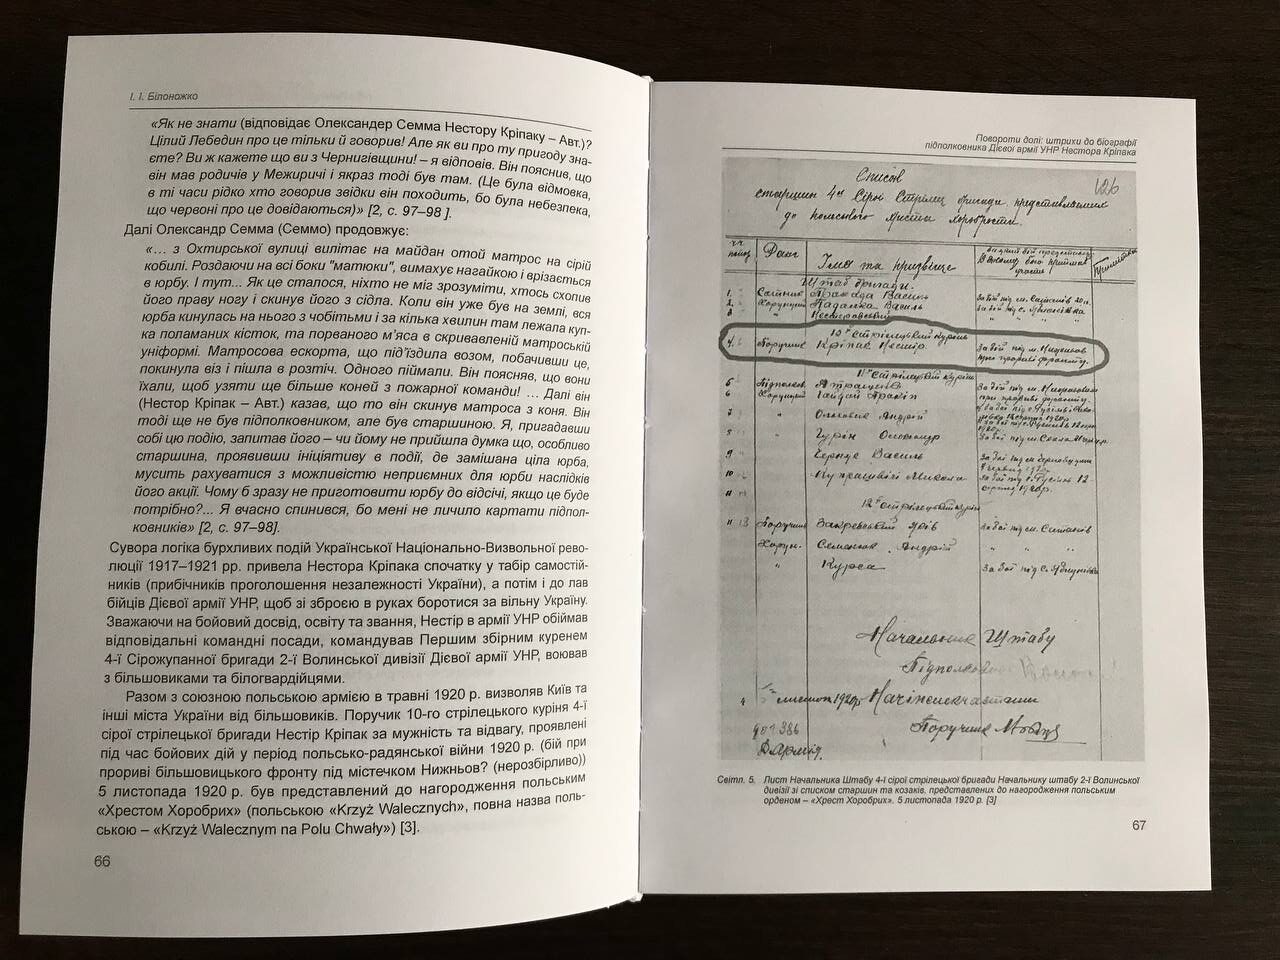 І. І. Білоножко
«Як не знати (відповідає Олександер Семма Нестору Кріпаку – Авт.)?
Цілий Лебедин про це тільки й говорив! Але як ви про ту пригоду зна-
єте? Ви ж кажете що ви з Чернигівщини! – я відповів. Він пояснив, що
він мав родичів у Межиричі і якраз тоді був там. (Це була відмовка,
в ті часи рідко хто говорив звідки він походить, бо була небезпека,
що червоні про це довідаються)» [2, с. 97–98 ].
Далі Олександр Семма (Семмо) продовжує:
«… з Охтирської вулиці вилітає на майдан отой матрос на сірій
кобилі. Роздаючи на всі боки "матюки", вимахує нагайкою і врізається
в юрбу. І тут... Як це сталося, ніхто не міг зрозуміти, хтось схопив
його праву ногу і скинув його з сідла. Коли він уже був на землі, вся
юрба кинулась на нього з чобітьми і за кілька хвилин там лежала куп-
ка поламаних кісток, та порваного м'яса в скривавленій матроській
уніформі. Матросова ескорта, що під'їздила возом, побачивши це,
покинула віз і пішла в розтіч. Одного піймали. Він поясняв, що вони
їхали, щоб узяти ще більше коней з пожарної команди! … Далі він
(Нестор Кріпак – Авт.) казав, що то він скинув матроса з коня. Він
тоді ще не був підполковником, але був старшиною. Я, пригадавши
собі цю подію, запитав його – чи йому не прийшла думка що, особливо
старшина, проявивши ініціативу в події, де замішана ціла юрба,
мусить рахуватися з можливістю неприємних для юрби наслідків
його акції. Чому б зразу не приготовити юрбу до відсічі, якщо це буде
потрібно?... Я вчасно спинився, бо мені не личило картати підпол-
ковників» [2, с. 97–98].
Сувора логіка бурхливих подій Української Національно-Визвольної рево-
люції 1917–1921 рр. привела Нестора Кріпака спочатку у табір самостій-
ників (прибічників проголошення незалежності України), а потім і до лав
бійців Дієвої армії УНР, щоб зі зброєю в руках боротися за вільну Україну.
Зважаючи на бойовий досвід, освіту та звання, Нестір в армії УНР обіймав
відповідальні командні посади, командував Першим збірним куренем
4-ї Сірожупанної бригади 2-ї Волинської дивізії Дієвої армії УНР, воював
з більшовиками та білогвардійцями.
Разом з союзною польською армією в травні 1920 р. визволяв Київ та
інші міста України від більшовиків. Поручик 10-го стрілецького куріня 4-ї
сірої стрілецької бригади Нестір Кріпак за мужність та відвагу, проявлені
під час бойових дій у період польсько-радянської війни 1920 р. (бій при
прориві більшовицького фронту під містечком Нижньов? (нерозбірливо))
5 листопада 1920 р. був представлений до нагородження польським
«Хрестом Хоробрих» (польською «Krzyż Walecznych», повна назва поль-
ською – «Krzyż Walecznym na Polu Chwały») [3].
66
Повороти долі: штрихи до біографії
підполковника Дієвої армії УНР Нестора Кріпака
126
Список
старшин 4ої Сірої Стрілец. бригади представляємих
до
Ранг
Імя та призвіще
Примітка
Штаб бригади.
1. Сотник Василь За бій під м. Сатанів
2. Хорунжий Василь За бій під с.
3 "
10й Стрілецький Курінь
4. Поручник Кріпак Нестір За бій під м.
при прориві фронту.
11й Стрілецький Курінь
5 Підполков.
6 Хорунжий Гайдай
7 " Андрій
8 " Гурін
9 " Василь
10 " Микола
11
12й Стрілецький Курінь
Поручник Закревський Яків За бій під м. Сатанів
Хорун. Семенюк Андрій " "
" Курса За бій під с.
Начальник Штабу
Підполковник
листоп. 1920р.
Поручник
Світл. 5. Лист Начальника Штабу 4-ї сірої стрілецької бригади Начальнику штабу 2-ї Волинської
дивізії зі списком старшин та козаків, представлених до нагородження польським
орденом – «Хрест Хоробрих». 5 листопада 1920 р. [3]
67